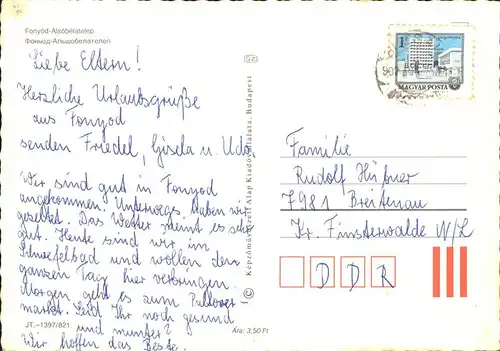 Fonyód-Alsóbélatelep
Фоньод-Альшобелателеп
Liebe Eltern!
Herzliche Urlaubsgrüße
aus Fonyod
senden Friedel, Gisela u. Udo.
Wir sind gut in Fonyod
angekommen. Unterwegs haben wir
gezeltet. Das Wetter meint es sehr
gut. Heute sind wir im
Schwefelbad und wollen den
ganzen Tag hier verbringen.
Morgen geht es zum Pullover-
markt. Seid Ihr noch gesund
und munter?
Wir hoffen das Beste.
JT.–1397/821
Ára: 3,50 Ft
SZ
© Képzőművészeti Alap Kiadóvállalata, Budapest
1
MAGYAR POSTA
Familie
Rudolf Hübner
7981 Breitenau
Kr. Finsterwalde N/L
D D R